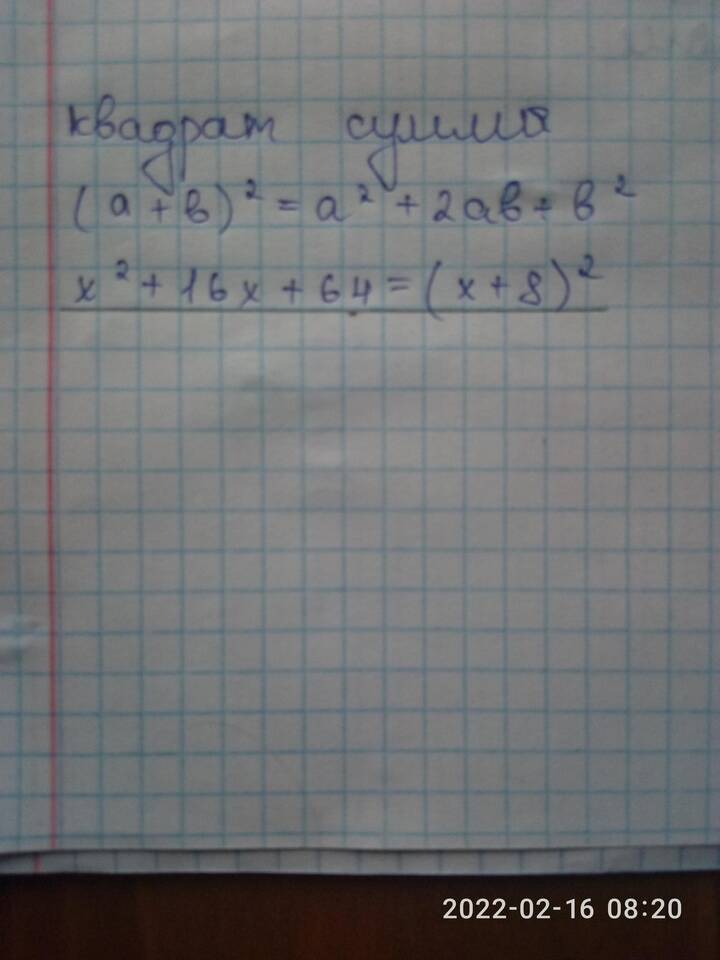 квадрат сумма
(a + b)² = a² + 2ab + b²
x² + 16x + 64 = (x + 8)²
2022-02-16 08:20